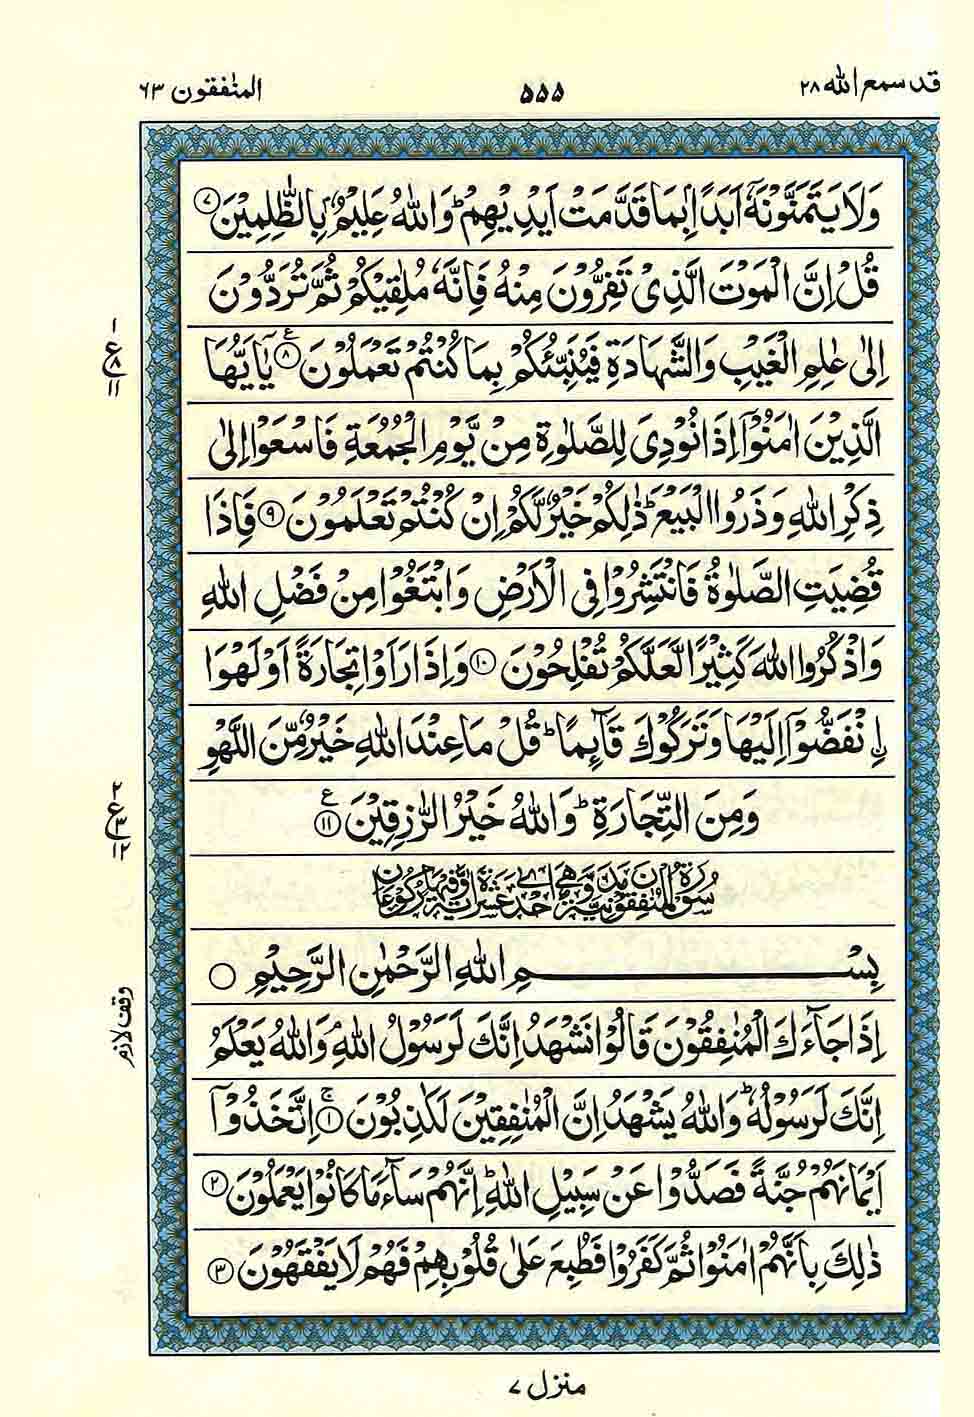 قد سمع الله ٢٨
۵۵۵
المنٰفقون ٦٣
وَلَا يَتَمَنَّوْنَهٗۤ اَبَدًۢا بِمَا قَدَّمَتْ اَيْدِيْهِمْ ؕ وَاللّٰهُ عَلِيْمٌۢ بِالظّٰلِمِيْنَ ﴿٧﴾
قُلْ اِنَّ الْمَوْتَ الَّذِىْ تَفِرُّوْنَ مِنْهُ فَاِنَّهٗ مُلٰقِيْكُمْ ثُمَّ تُرَدُّوْنَ
اِلٰى عٰلِمِ الْغَيْبِ وَالشَّهَادَةِ فَيُنَبِّئُكُمْ بِمَا كُنْتُمْ تَعْمَلُوْنَ ﴿٨﴾ ع يٰۤاَيُّهَا
١ ع ٨ ١١
الَّذِيْنَ اٰمَنُوْۤا اِذَا نُوْدِىَ لِلصَّلٰوةِ مِنْ يَّوْمِ الْجُمُعَةِ فَاسْعَوْا اِلٰى
ذِكْرِ اللّٰهِ وَذَرُوا الْبَيْعَ ؕ ذٰلِكُمْ خَيْرٌ لَّكُمْ اِنْ كُنْتُمْ تَعْلَمُوْنَ ﴿٩﴾ فَاِذَا
قُضِيَتِ الصَّلٰوةُ فَانْتَشِرُوْا فِى الْاَرْضِ وَابْتَغُوْا مِنْ فَضْلِ اللّٰهِ
وَاذْكُرُوا اللّٰهَ كَثِيْرًا لَّعَلَّكُمْ تُفْلِحُوْنَ ﴿١٠﴾ وَاِذَا رَاَوْا تِجَارَةً اَوْ لَهْوَا
۟ اِنْفَضُّوْۤا اِلَيْهَا وَتَرَكُوْكَ قَآئِمًا ؕ قُلْ مَا عِنْدَ اللّٰهِ خَيْرٌ مِّنَ اللَّهْوِ
وَمِنَ التِّجَارَةِ ؕ وَاللّٰهُ خَيْرُ الرّٰزِقِيْنَ ﴿١١﴾ ع
٢ ع ٣ ١٢
سُوْرَةُ الْمُنٰفِقُوْنَ مَدَنِيَّةٌ وَّهِىَ اِحْدٰى عَشْرَةَ اٰيَةً وَّفِيْهَا رُكُوْعَانِ
بِسْمِ اللّٰهِ الرَّحْمٰنِ الرَّحِيْمِ
اِذَا جَآءَكَ الْمُنٰفِقُوْنَ قَالُوْا نَشْهَدُ اِنَّكَ لَرَسُوْلُ اللّٰهِ ۘ وَاللّٰهُ يَعْلَمُ
وقف لازم
اِنَّكَ لَرَسُوْلُهٗ ؕ وَاللّٰهُ يَشْهَدُ اِنَّ الْمُنٰفِقِيْنَ لَكٰذِبُوْنَ ﴿١﴾ ۚ اِتَّخَذُوْۤا
اَيْمَانَهُمْ جُنَّةً فَصَدُّوْا عَنْ سَبِيْلِ اللّٰهِ ؕ اِنَّهُمْ سَآءَ مَا كَانُوْا يَعْمَلُوْنَ ﴿٢﴾
ذٰلِكَ بِاَنَّهُمْ اٰمَنُوْا ثُمَّ كَفَرُوْا فَطُبِعَ عَلٰى قُلُوْبِهِمْ فَهُمْ لَا يَفْقَهُوْنَ ﴿٣﴾
منزل ٧